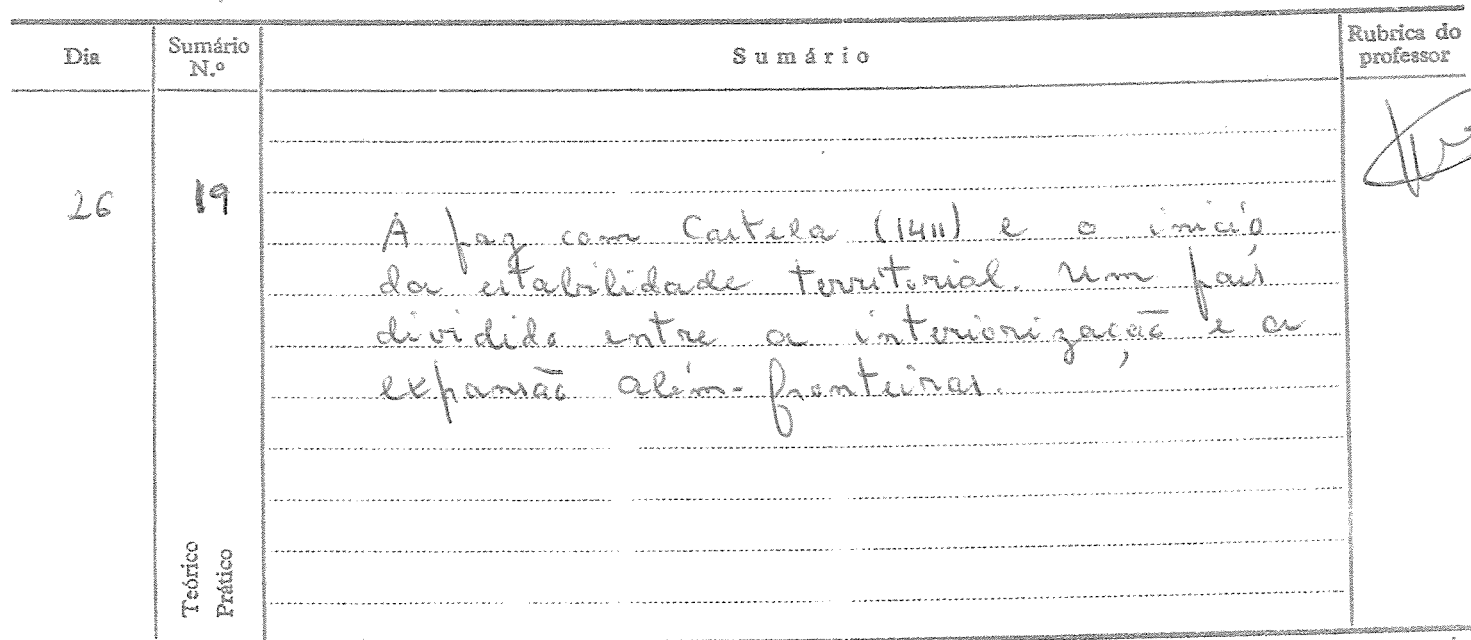 Dia
Sumário
N.º
Sumário
Rubrica do
professor
26
19
A paz com Castela (1411) e o início
da estabilidade territorial. Um país
dividido entre a interiorização e a
expansão além-fronteiras.
Teórico
Prático